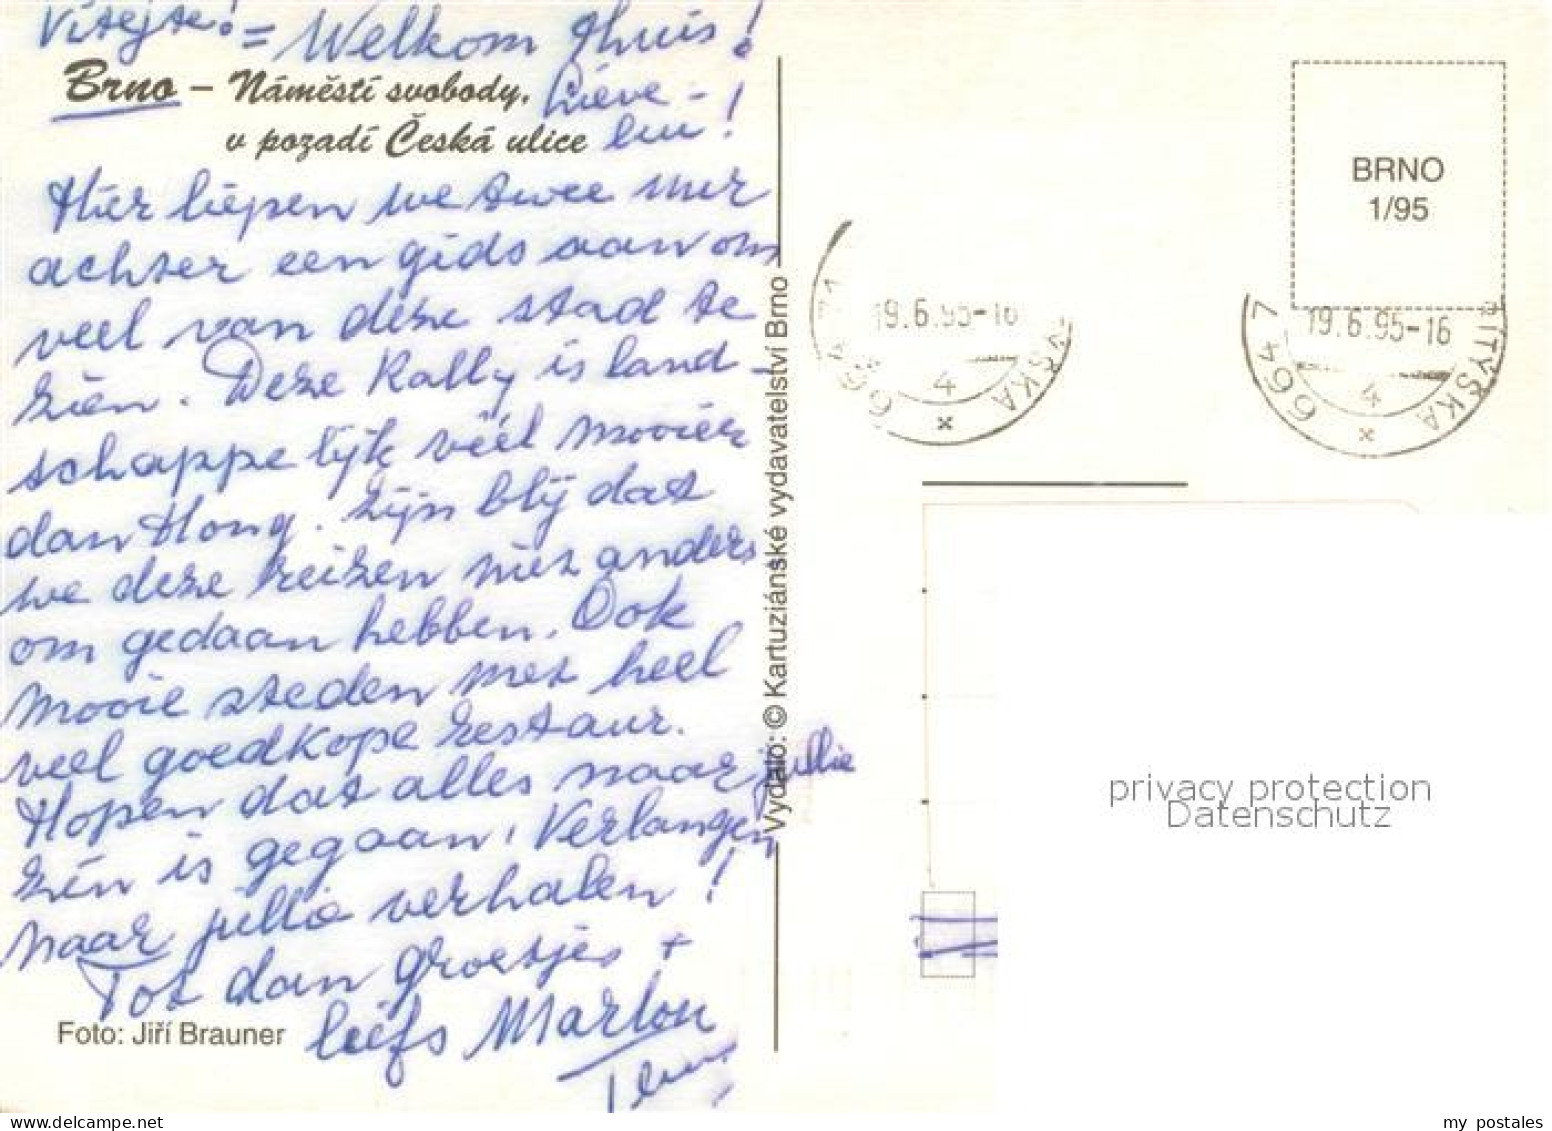 Vítejte! = Welkom thuis!
Brno – Náměstí svobody,
Lieve - !
v pozadí Česká ulice
Hier liepen we twee uur
achter een gids aan om
veel van deze stad te
zien. Deze Rally is land-
schappelijk véél mooier
dan Hong. Zijn blij dat
we deze reizen niet anders
om gedaan hebben. Ook
mooie steden met heel
veel goedkope restaur.
Hopen dat alles naar jullie
zin is gegaan, Verlangen
naar jullie verhalen!
Tot dan groetjes +
liefs Marlou
Foto: Jiří Brauner
Vydalo: © Kartuziánské vydavatelství Brno
BRNO
1/95
19.6.95-16
664 71
4
VŠKA
19.6.95-16
664 7
4
ITVŠKA
privacy protection
Datenschutz
my postales